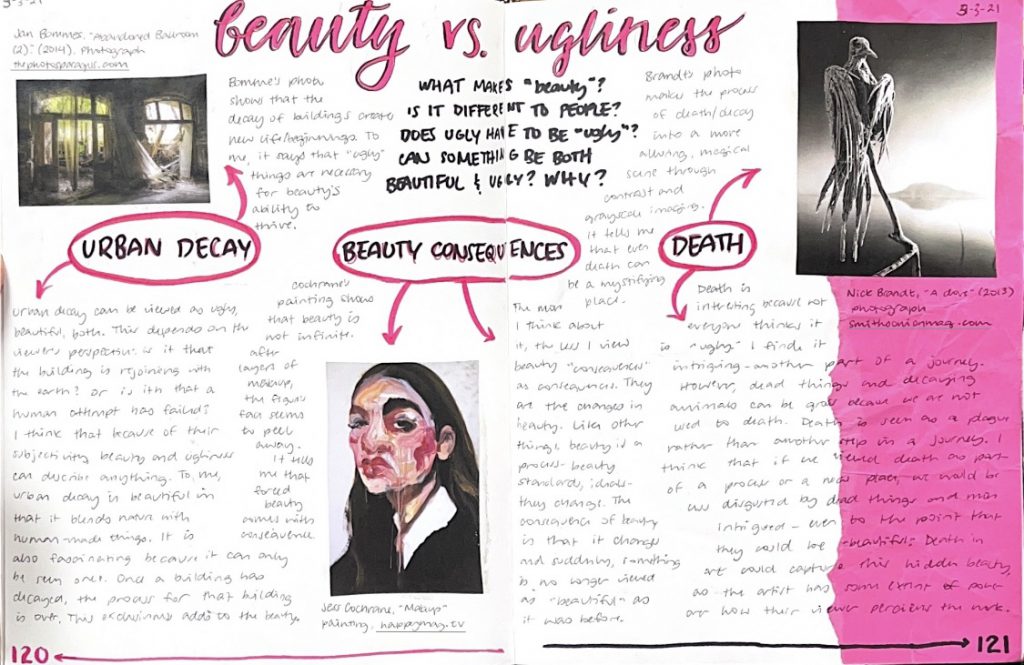 3-3-21
3-3-21
beauty vs. ugliness
Jan Bommes. "Abandoned Ballroom
(2)." (2014). Photograph
thephotosparagus.com
Bomme's photo
shows that the
decay of buildings create
new life/beginnings. To
me, it says that "ugly"
things are necessary
for beauty's
ability to
thrive.
WHAT MAKES "beauty"?
IS IT DIFFERENT TO PEOPLE?
DOES UGLY HAVE TO BE "ugly"?
CAN SOMETHING BE BOTH
BEAUTIFUL & UGLY? WHY?
Brandt's photo
makes the process
of death/decay
into a more
alluring, magical
scene through
contrast and
grayscale imaging.
it tells me
that even
death can
be a mystifying
place.
URBAN DECAY
BEAUTY CONSEQUENCES
DEATH
Nick Brandt, "A dove" (2013)
photograph
smithsonianmag.com
Urban decay can be viewed as ugly,
beautiful, both. This depends on the
viewer's perspective. is it that
the building is rejoining with
the earth? or is it that a
human attempt has failed?
I think that because of their
subjectivity beauty and ugliness
can describe anything. To me,
urban decay is beautiful in
that it blends nature with
human-made things. It is
also fascinating because it can only
be seen once. Once a building has
decayed, the process for that building
is over. This exclusivness adds to the beauty.
cochrane's
painting shows
that beauty is
not infinite.
after
layers of
makeup,
the figure's
face seems
to peel
away.
It tells
me that
forced
beauty
comes with
consequence.
Jess Cochrane, "Makeup"
painting, happymag.tv
The more
I think about
it, the less I view
beauty "consequences"
as consequences. They
are the changes in
beauty. Like other
things, beauty is a
process- beauty
standards, ideals-
they change. The
consequence of beauty
is that it changes
and suddenly, something
is no longer viewed
as "beautiful" as
it was before.
Death is
interesting because not
everyone thinks it
is "ugly." I find it
intriguing-another part of a journey.
However, dead things and decaying
animals can be gross because we are not
used to death. Death is seen as a plague
rather than another step in a journey. I
think that if we viewed death as part
of a process or a new place, we would be
less disgusted by dead things and more
intrigued - even to the point that
they could be -beautiful. Death in
art could capture this hidden beauty,
as the artist has some extent of power
over how their viewer perceives the work.
120
121